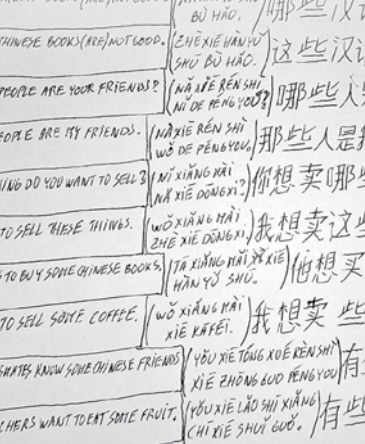 BÙ HǍO. 哪些汉
CHINESE BOOKS (ARE) NOT GOOD. ZHÈ XIĒ HÀN YǓ SHŪ BÙ HǍO. 这些汉语
PEOPLE ARE YOUR FRIENDS? NǍ XIĒ RÉN SHÌ NǏ DE PÉNG YOU? 哪些人
PEOPLE ARE MY FRIENDS. NÀ XIĒ RÉN SHÌ WǑ DE PÉNG YOU. 那些人是我
DO YOU WANT TO SELL? NǏ XIǍNG MÀI NǍ XIĒ DŌNGXI? 你想卖哪些
TO SELL THESE THINGS. WǑ XIǍNG MÀI ZHÈ XIĒ DŌNGXI. 我想卖这些
TO BUY SOME CHINESE BOOKS. TĀ XIǍNG MǍI XIĒ HÀN YǓ SHŪ. 他想买
TO SELL SOME COFFEE. WǑ XIǍNG MÀI XIĒ KĀFĒI. 我想卖 些
KNOW SOME CHINESE FRIENDS YǑU XIĒ TÓNG XUÉ RÈN SHÌ XIĒ ZHŌNG GUÓ PÉNG YOU 有些
WANT TO EAT SOME FRUIT. YǑU XIĒ LǍO SHĪ XIǍNG CHĪ XIĒ SHUǏ GUǑ. 有些